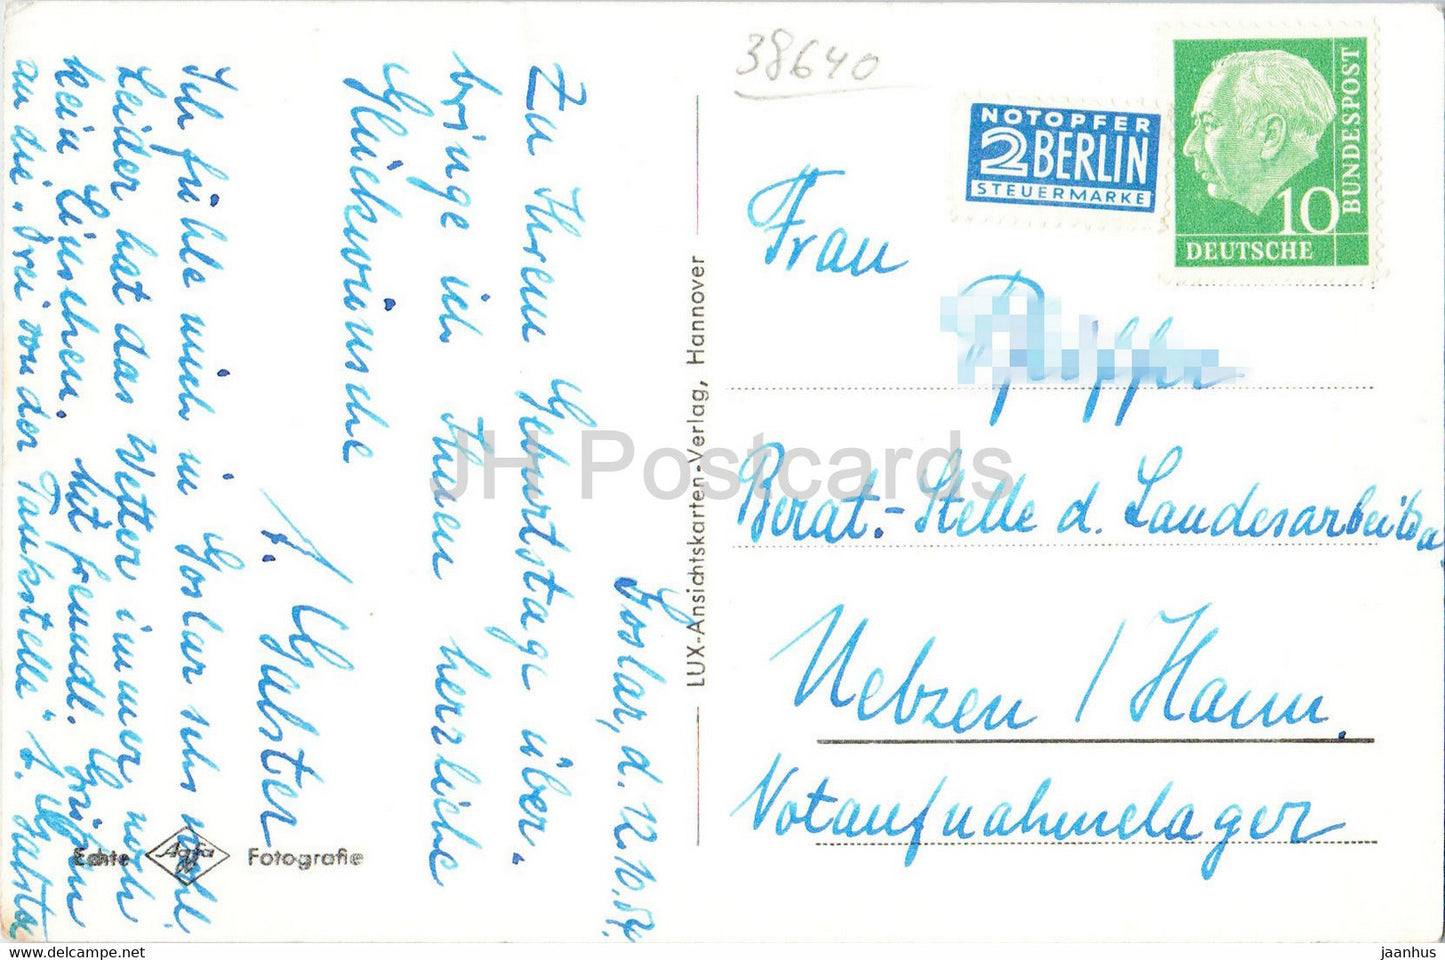 38640
NOTOPFER
2 BERLIN
STEUERMARKE
BUNDESPOST
10
DEUTSCHE
Frau
Berat.-Stelle d. Landesarbeitsa
Uelzen / Hann.
Notaufnahmelager
LUX-Ansichtskarten-Verlag, Hannover
Goslar, d. 12.10.54
Zu Ihrem Geburtstage über-
bringe ich Ihnen herzliche
Glückwünsche
A. Galster
Ich fühle mich in Goslar sehr wohl.
Leider hat das Wetter immer noch
kein Einsehen. Mit freundl. Grüßen
an die "Drei von der Tankstelle" A. Galster
Echte Agfa Fotografie
JH Postcards
www.delcampe.net
jaanhus